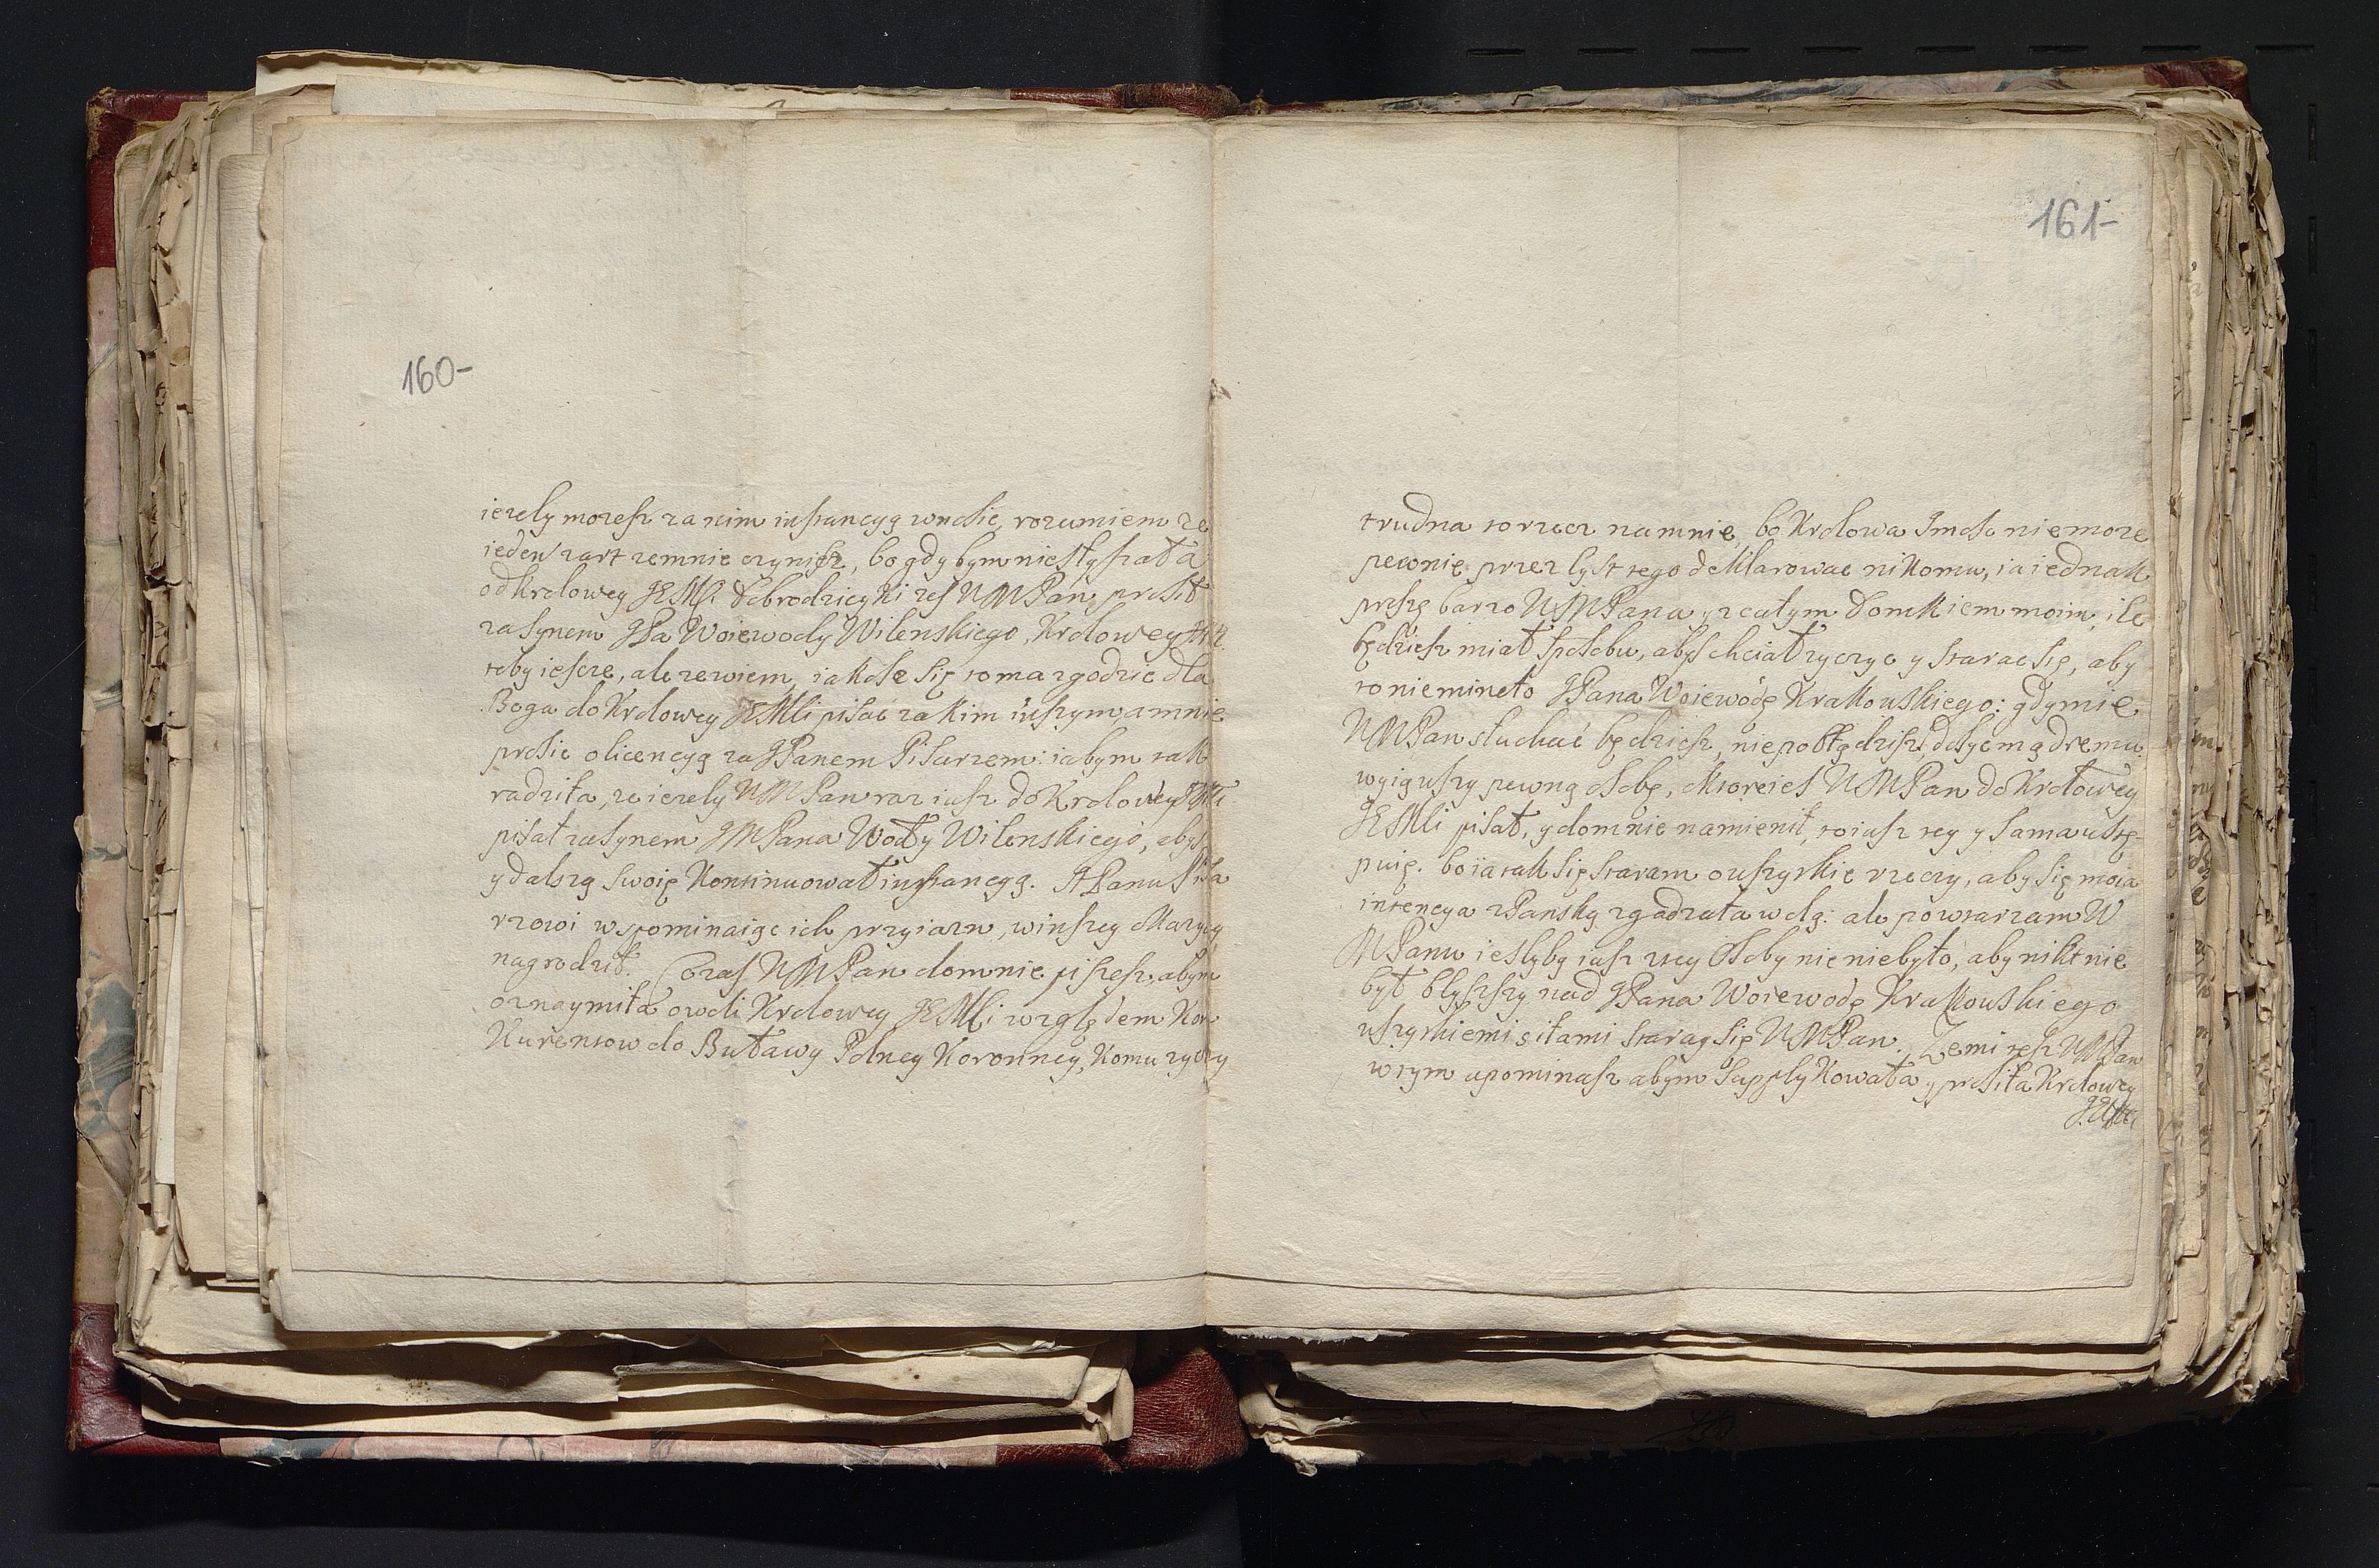 160-
iezely mozesz za nim instancyą wnosic, rozumiem ze
ieden zart zemnie czynisz, bo gdy bym nie słyszała
od Krolowey JEMści Dobrodzieyki zes WMPan prosił
za synem JPa Woiewody Wilenskiego, Krolowey
zeby ieszcze, ale zewiem, iakose się to ma zgodzic dla
Boga do Krolowey JEMści pisac za kim inszym, a mnie
prosic o licencyą za JPanem Pisarzem: ia bym tak
radziła, ze iezely WMPan raz iusz do Krolowey JEMści
pisał za synem JMPana Wody Wilenskiego, abys
y dalszą swoię kontinuował instancyą. JPanu Pisa
rzowi wspominaiąc ich przyiazn, w inszey okazyey
nagrodził. Coząs WMPan do mnie piszesz, abym
oznaymiła o woli Krolowey JEMści względem Kon
kurentow do Buławy Polney Koronney, komu zyczy
161-
trudna to rzecz na mnie, bo Krolowa Jmość nie moze
pewnie przez lyst tego deklarowac nikomu, ia iednak
proszę barzo WMPana y z całym domkiem moim, ile
będziesz miał sposobu, abys chciał zyczyc y starac się, aby
to nie mineło JPana Woiewodę Krakowskiego: gdy mie
WMPan słuchać będziesz, nie pobłądzisz, dosyc mądremu.
wyiąwszy pewną osobę, o ktoreies WMPan do Krolowey
JEMści pisał, y do mnie namienił, to iusz tey y sama ustę-
puię. bo ia tak się staram o wszystkie rzeczy, aby się moia
intencya z Panską zgadzała wolą: ale powtarzam W
MPanu iesly by iusz z tey Osoby nic nie było, aby nikt nie
był blyszszy nad JPana Woiewodę Krakowskiego
wszystkiemi siłami staray się WMPan. Ze mi tesz WMPan
w tym upominasz abym supplykowała y prosiła Krolowey
JEMści